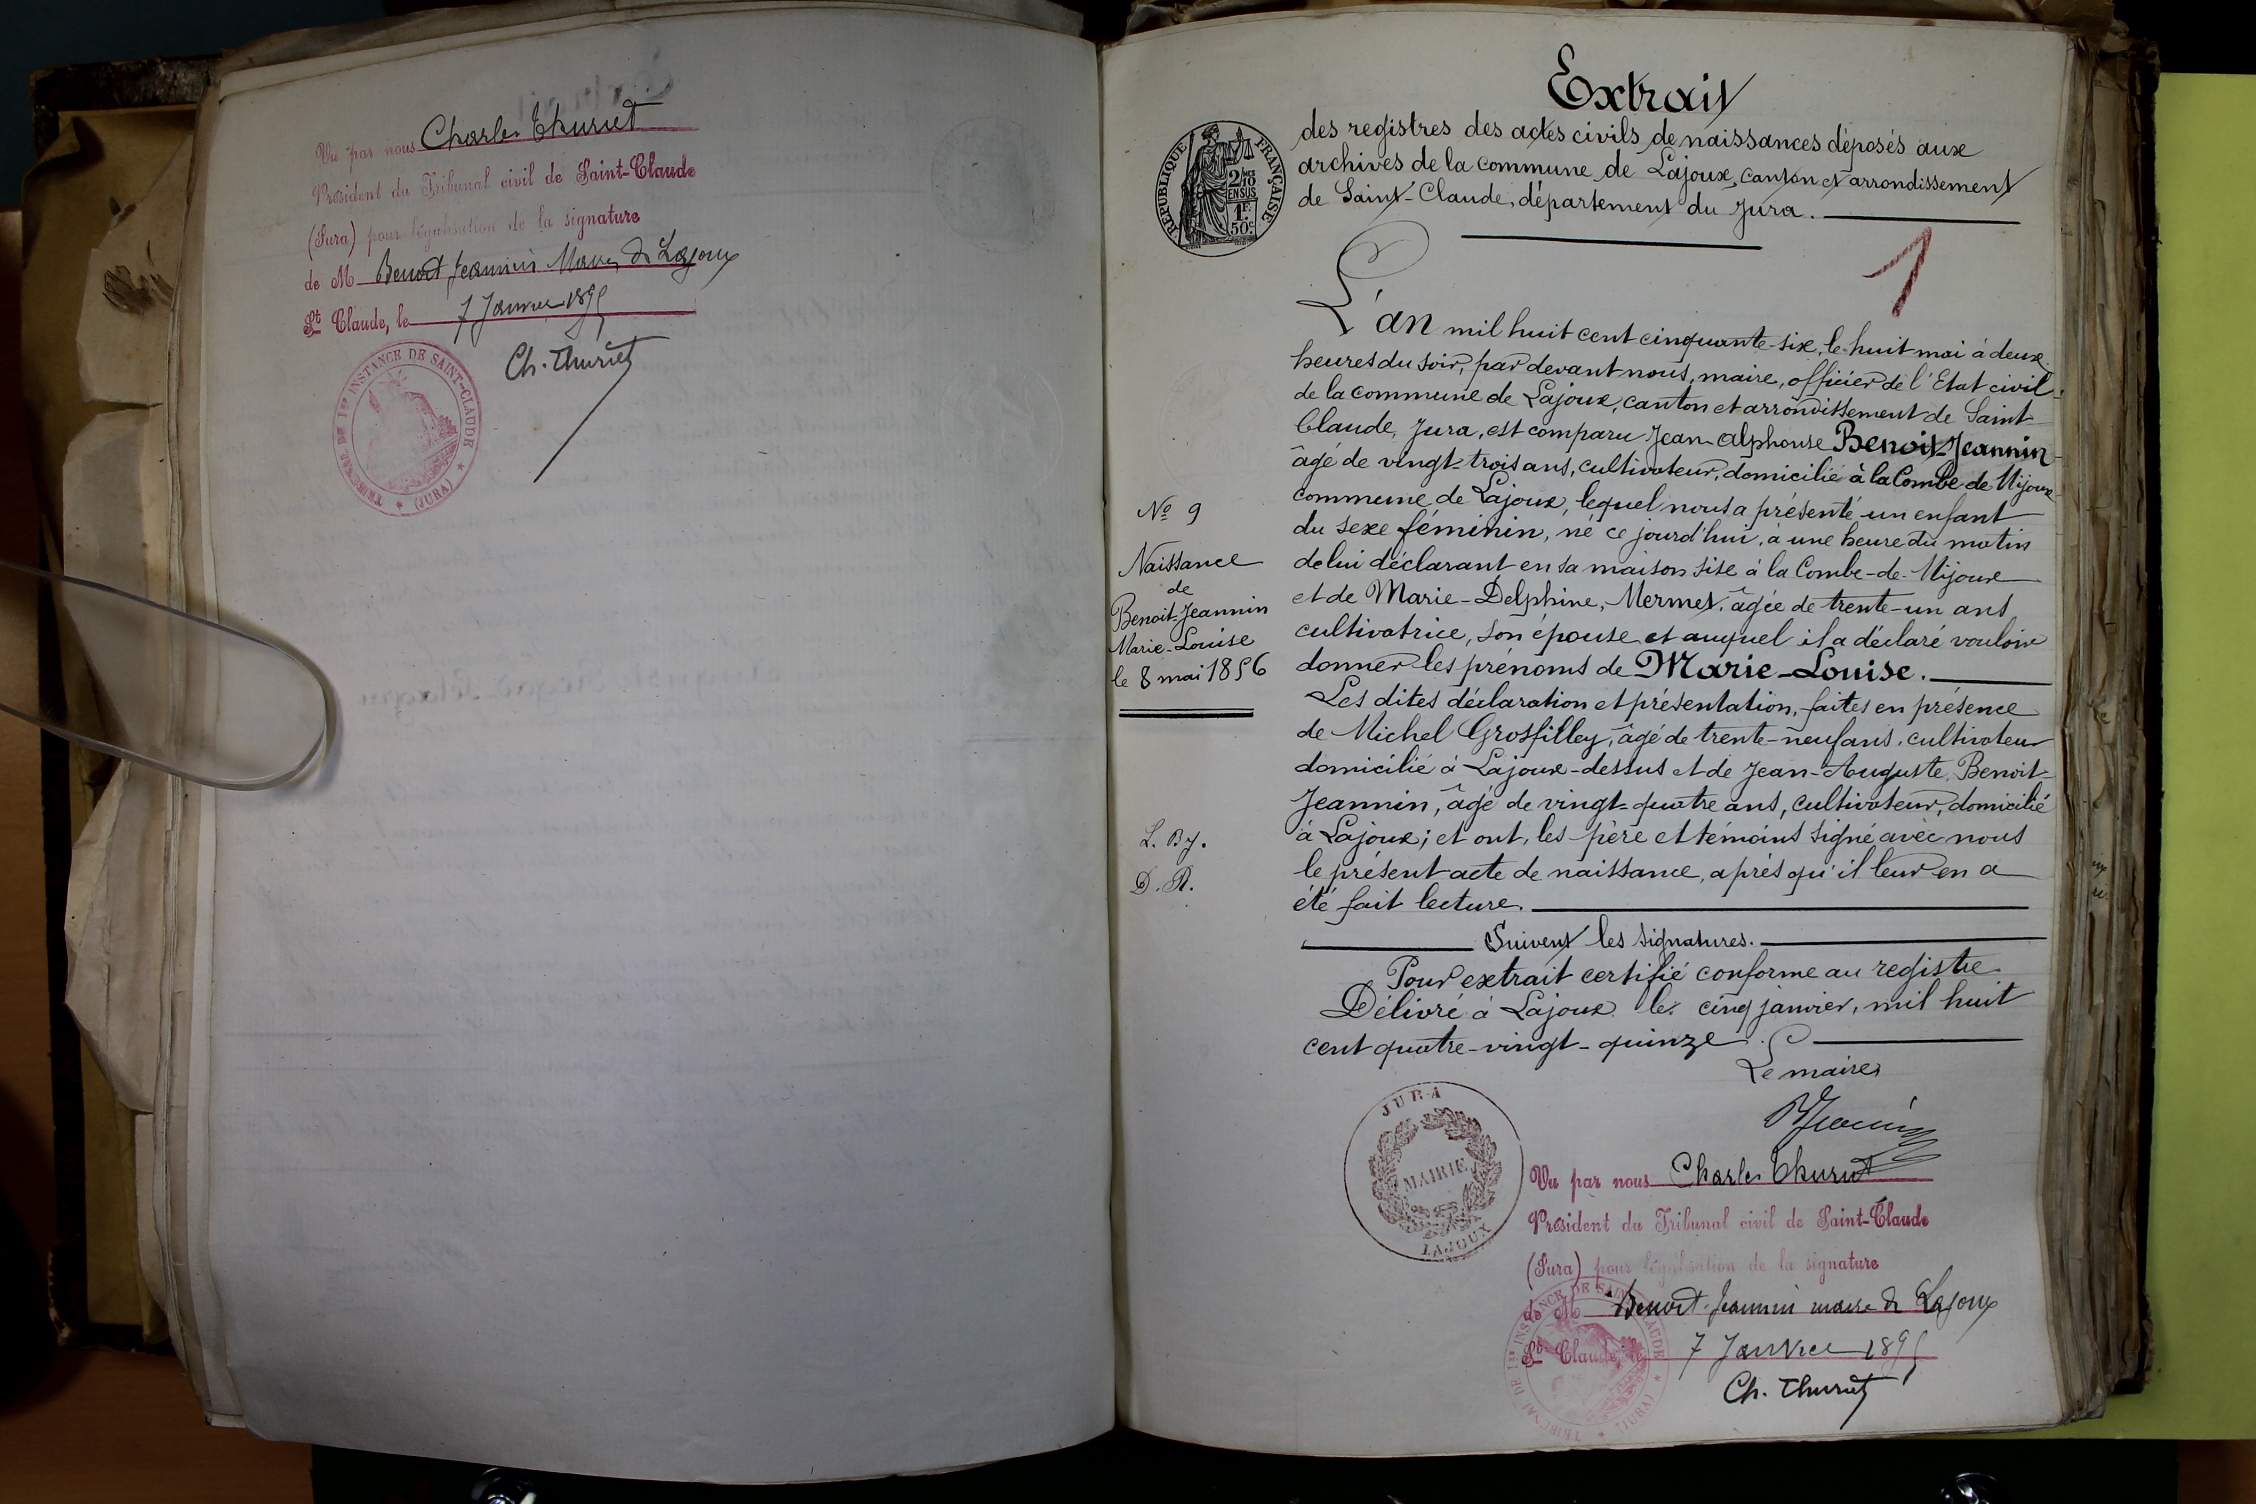 Vu par nous Charles Thuriet
Président du Tribunal civil de Saint-Claude
(Jura) pour légalisation de la signature
de M Benoit Jeannin Maire de Lajoux
St Claude, le 7 Janvier 1895
Ch. Thuriet
TRIBUNAL DE 1re INSTANCE DE SAINT-CLAUDE
★ (JURA) ★
Extrait
des registres des actes civils de naissances déposés aux
archives de la commune de Lajoux, canton et arrondissement
de Saint-Claude, département du Jura.
RÉPUBLIQUE FRANÇAISE
2/10
EN SUS
1F.
50c
1
L'an mil huit cent cinquante-six, le huit mai à deux
heures du soir, par devant nous, maire, officier de l'Etat civil
de la commune de Lajoux, canton et arrondissement de Saint-
Claude, Jura, est comparu Jean Alphonse Benoit-Jeannin
âgé de vingt-trois ans, cultivateur, domicilié à la Combe de Mijoux
commune de Lajoux, lequel nous a présenté un enfant
du sexe féminin, né ce jourd'hui, à une heure du matin
de lui déclarant en sa maison sise à la Combe-de-Mijoux
et de Marie-Delphine, Mermet, âgée de trente-un ans
cultivatrice, son épouse et auquel il a déclaré vouloir
donner les prénoms de Marie-Louise.
Les dites déclaration et présentation, faites en présence
de Michel Grosfilley, âgé de trente-neuf ans, cultivateur
domicilié à Lajoux-dessus et de Jean-Auguste Benoit-
Jeannin, âgé de vingt-quatre ans, cultivateur, domicilié
à Lajoux; et ont, les père et témoins signé avec nous
le présent acte de naissance, après qu'il leur en a
été fait lecture.
Suivent les signatures.
Pour extrait certifié conforme au registre
Délivré à Lajoux le cinq janvier, mil huit
cent quatre-vingt-quinze.
Le maire
No 9
Naissance
de
Benoit-Jeannin
Marie-Louise
le 8 mai 1856
L. By.
D. R.
BJeannin
JURA
MAIRIE
LAJOUX
Vu par nous Charles Thuriet
Président du Tribunal civil de Saint-Claude
(Jura) pour légalisation de la signature
de M Benoit-Jeannin maire de Lajoux
St Claude, le 7 Janvier 1895
Ch. Thuriet
TRIBUNAL DE 1re INSTANCE DE SAINT-CLAUDE
★ (JURA) ★